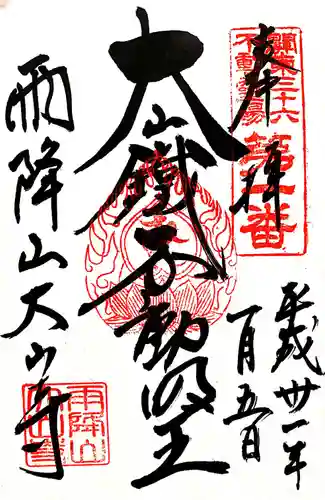 奉拝
関東三十六
不動霊場
第一番
平成卅一年
一月五日
大山鐵不動明王
雨降山大山寺
雨降山
大山寺